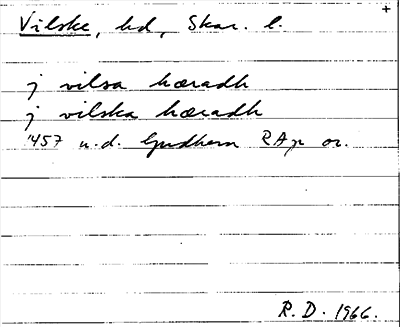 +
Vilske, hd, Skar. l.
j vilsa hæradh
j vilska hæradh
1457 u.d. Gudhem RAp or.
R. D. 1966.